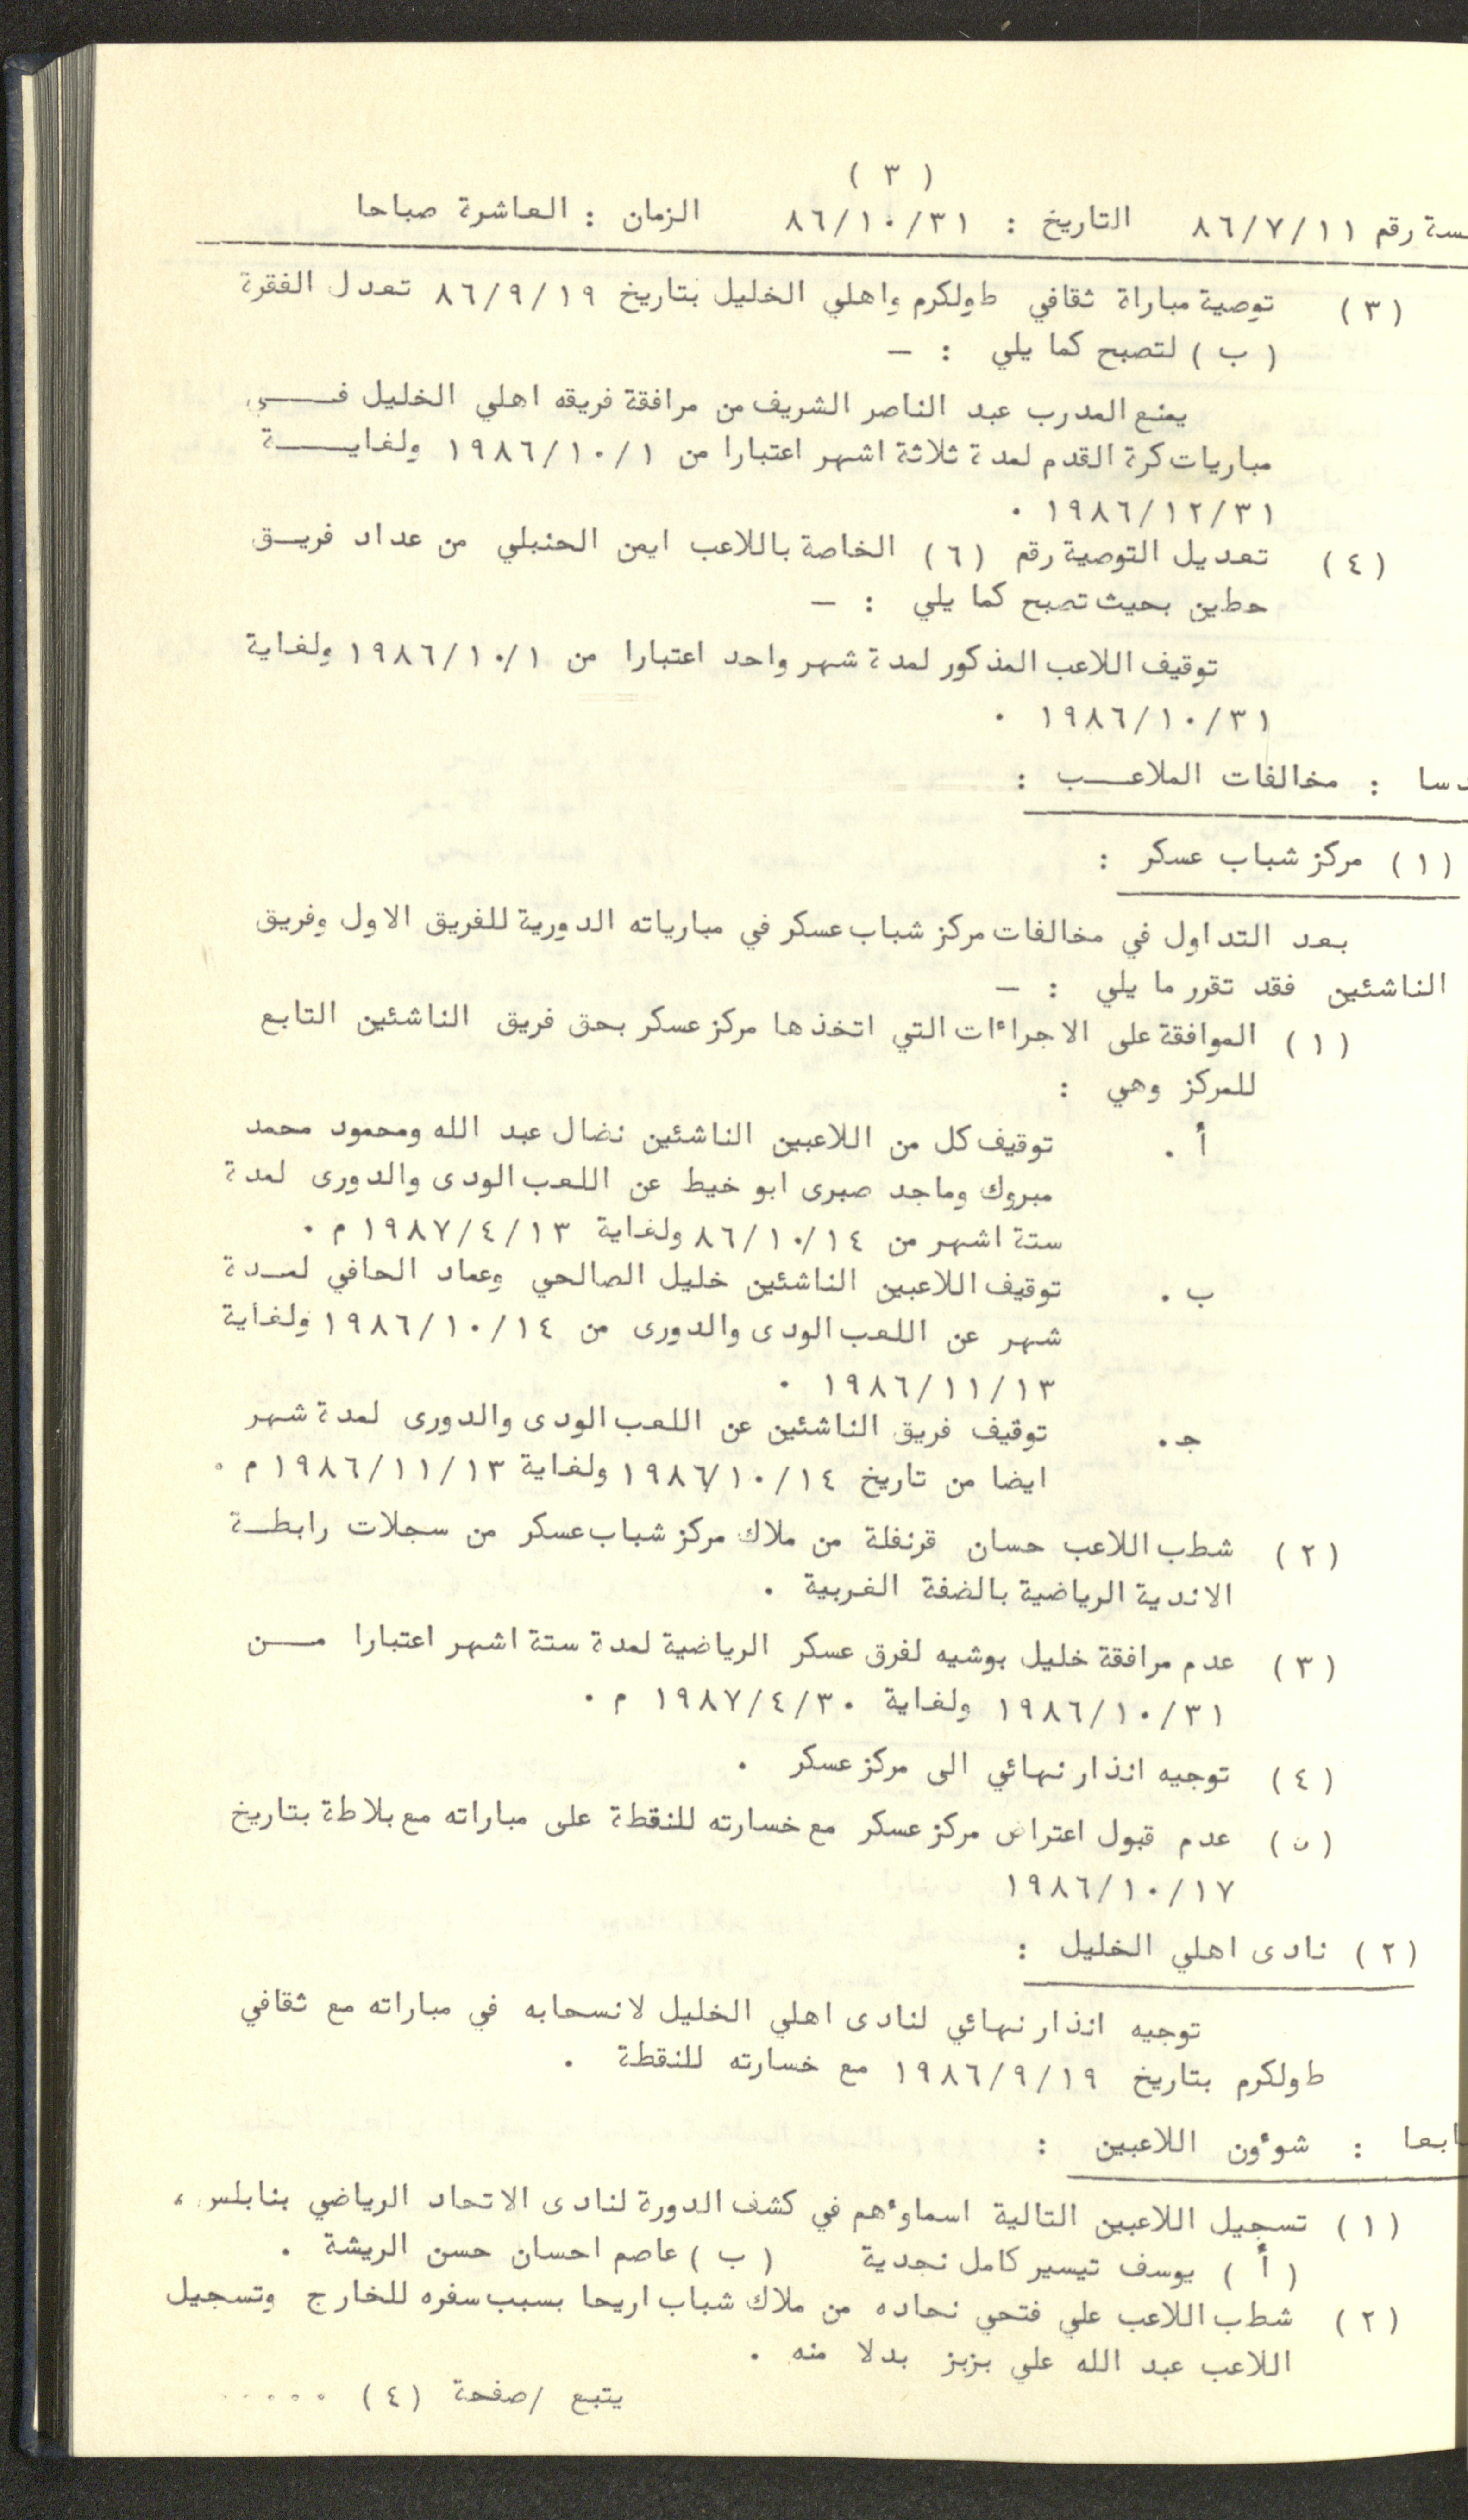 ( ٣ )
سة رقم ٨٦/٧/١١ التاريخ : ٨٦/١٠/٣١ الزمان : العاشرة صباحا
( ٣ ) توصية مباراة ثقافي طولكرم واهلي الخليل بتاريخ ٨٦/٩/١٩ تعدل الفقرة
( ب ) لتصبح كما يلي : –
يمنع المدرب عبد الناصر الشريف من مرافقة فريقه اهلي الخليل فــــي
مباريات كرة القدم لمدة ثلاثة اشهر اعتبارا من ١٩٨٦/١٠/١ ولغايــــة
١٩٨٦/١٢/٣١ .
( ٤ ) تعديل التوصية رقم (٦) الخاصة باللاعب ايمن الحنبلي من عداد فريــق
حطين بحيث تصبح كما يلي : –
توقيف اللاعب المذكور لمدة شهر واحد اعتبارا من ١٩٨٦/١٠/١ ولغاية
١٩٨٦/١٠/٣١ .
دسا : مخالفات الملاعــب :
(١) مركز شباب عسكر :
بعد التداول في مخالفات مركز شباب عسكر في مبارياته الدورية للفريق الاول وفريق
الناشئين فقد تقرر ما يلي : –
(١) الموافقة على الاجراءات التي اتخذها مركز عسكر بحق فريق الناشئين التابع
للمركز وهي :
أ . توقيف كل من اللاعبين الناشئين نضال عبد الله ومحمود محمد
مبروك وماجد صبرى ابو خيط عن اللعب الودى والدورى لمدة
ستة اشهر من ٨٦/١٠/١٤ ولغاية ١٩٨٧/٤/١٣ م .
ب . توقيف اللاعبين الناشئين خليل الصالحي وعماد الحافي لمــدة
شهر عن اللعب الودى والدورى من ١٩٨٦/١٠/١٤ ولغاية
١٩٨٦/١١/١٣ .
جـ . توقيف فريق الناشئين عن اللعب الودى والدورى لمدة شهر
ايضا من تاريخ ١٩٨٦/١٠/١٤ ولغاية ١٩٨٦/١١/١٣ م .
(٢) شطب اللاعب حسان قرنفلة من ملاك مركز شباب عسكر من سجلات رابطــة
الاندية الرياضية بالضفة الغربية .
(٣) عدم مرافقة خليل بوشيه لفرق عسكر الرياضية لمدة ستة اشهر اعتبارا مــن
١٩٨٦/١٠/٣١ ولغاية ١٩٨٧/٤/٣٠ م .
(٤) توجيه انذار نهائي الى مركز عسكر .
(٥) عدم قبول اعتراض مركز عسكر مع خسارته للنقطة على مباراته مع بلاطة بتاريخ
١٩٨٦/١٠/١٧
(٢) نادى اهلي الخليل :
توجيه انذار نهائي لنادى اهلي الخليل لانسحابه في مباراته مع ثقافي
طولكرم بتاريخ ١٩٨٦/٩/١٩ مع خسارته للنقطة .
ابعا : شؤون اللاعبين :
(١) تسجيل اللاعبين التالية اسماؤهم في كشف الدورة لنادى الاتحاد الرياضي بنابلس ،
( أ ) يوسف تيسير كامل نجدية ( ب ) عاصم احسان حسن الريشة .
(٢) شطب اللاعب علي فتحي نحاده من ملاك شباب اريحا بسبب سفره للخارج وتسجيل
اللاعب عبد الله علي بزبز بدلا منه .
يتبع /صفحة (٤) .....